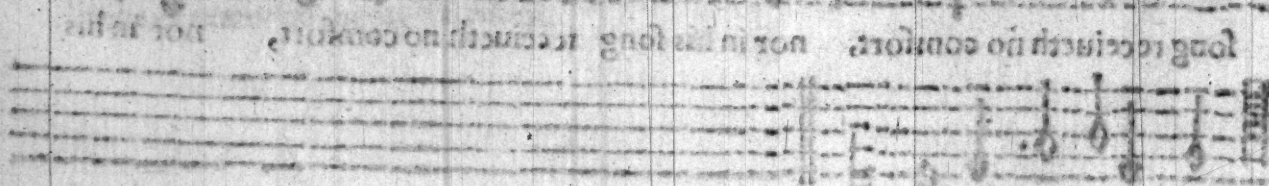 ſong receiueth no comfort, nor in his ſong receiueth no comfort, nor in his